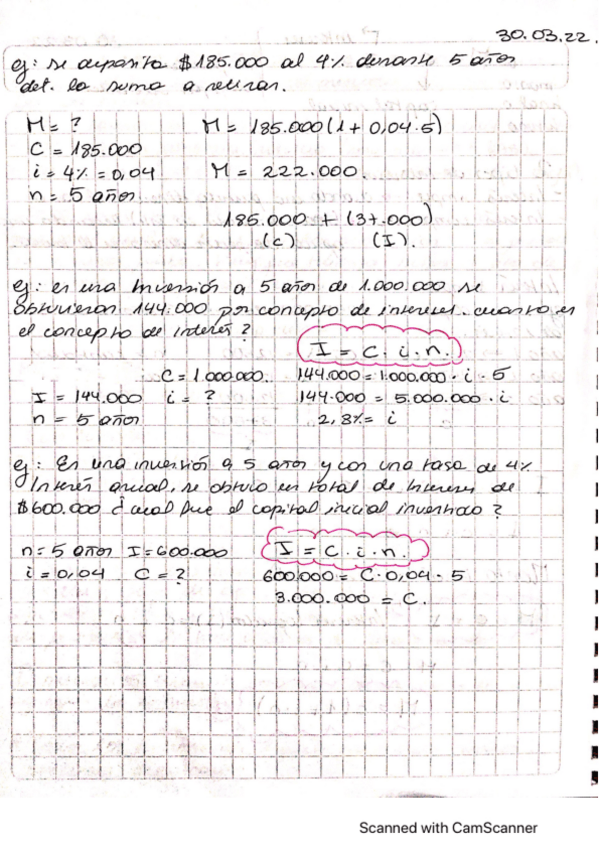 30.03.22.
ej: se deposita $185.000 al 4% durante 5 años
det. la suma a retirar.
M = ? M = 185.000(1 + 0,04.5)
C = 185.000
i = 4% = 0,04 M = 222.000.
n = 5 años
185.000 + (37.000)
(C) (I).
ej: en una Inversión a 5 años de 1.000.000 se
obtuvieron 144.000 por concepto de intereses. cuanto es
el concepto de interés?
I = C. i. n.
C = 1.000.000.. 144.000 = 1.000.000 . i . 5
I = 144.000 i = ? 144.000 = 5.000.000 . i
n = 5 años 2,8% = i
ej: En una inversión a 5 años y con una tasa de 4%
Interés anual, se obtuvo un total de Intereses de
$600.000 ¿cual fue el capital inicial invertido?
n = 5 años I = 600.000 I = C. i. n.
i = 0,04 C = ? 600.000 = C. 0,04 . 5
3.000.000 = C.
Scanned with CamScanner